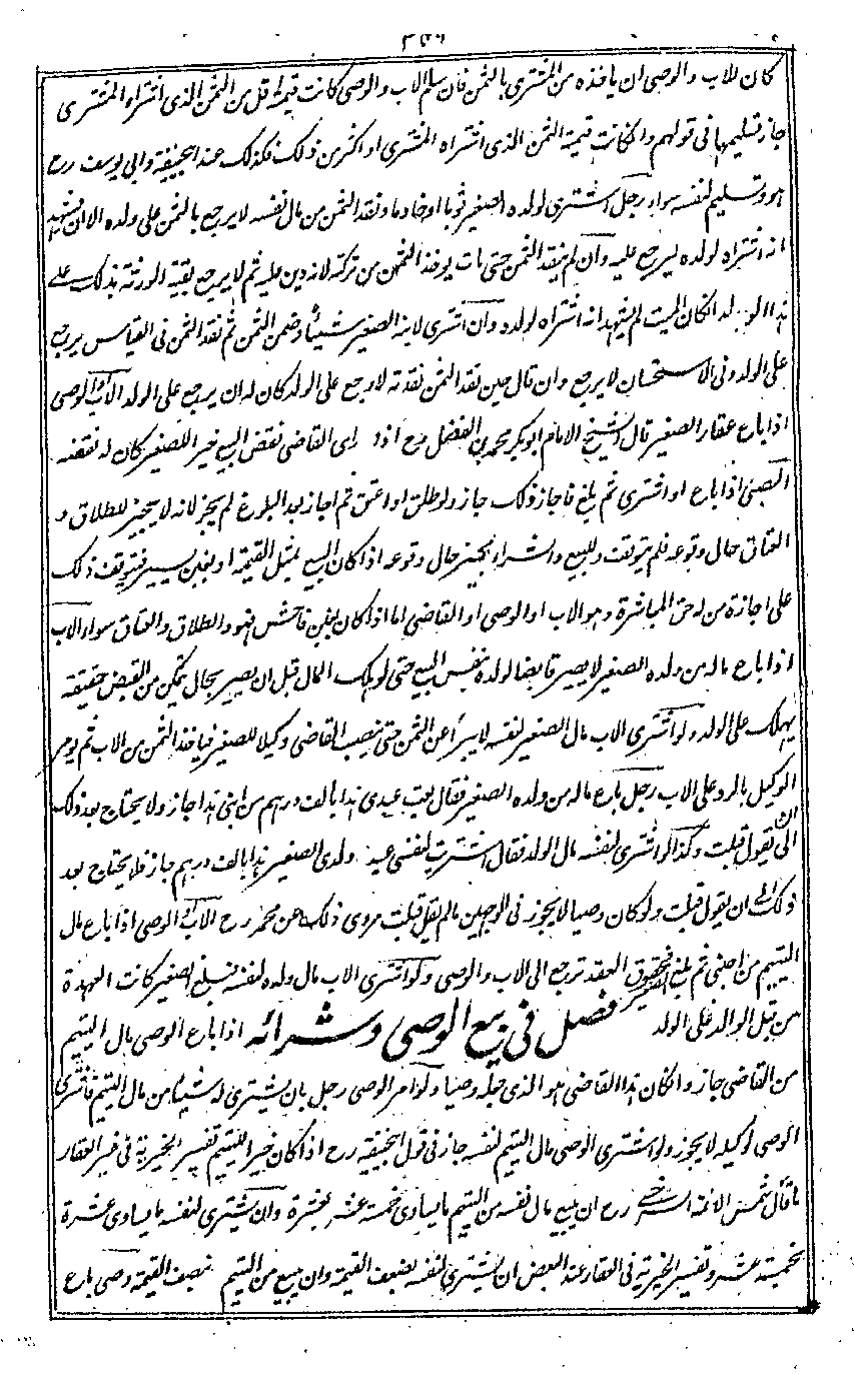 كان للاب والوصى ان ياخذه من المشترى بالثمن فان سلم الاب والوصى كانت قيمته اقل من الثمن الذى اشتراه المشترى
جاز تسليمهما فى قولهم وان كانت قيمة الثمن الذى اشتراه المشترى او اكثر من ذلك فكذلك عند ابيحنيفة وابى يوسف رح
هو وتسليم لنفسه سواء رجل اشترى لولده الصغير ثوبا او خادما ونقد الثمن من مال نفسه لا يرجع بالثمن على ولده الا ان يشهد
انه اشتراه لولده ليرجع عليه وان لم ينقد الثمن حتى مات يوخذ الثمن من تركته لانه دين عليه ثم لا يرجع بقية الورثة بذلك على
هذا الولد ان كان الميت لم يشهد انه اشتراه لولده وان اشترى لابنه الصغير شيئا وضمن الثمن ثم نقد الثمن فى القياس يرجع
على الولد وفى الاستحسان لا يرجع وان قال حين نقد الثمن نقدته لارجع على الولد كان له ان يرجع على الولد الاب والوصى
اذا باع عقار الصغير قال الشيخ الامام ابو بكر محمد بن الفضل رح اذا راى القاضى نقض البيع خير اللصغير كان له نقضه
الصبى اذا باع او اشترى ثم بلغ فاجاز ذلك جاز ولو طلق او اعتق ثم اجاز بعد البلوغ لم يجز لانه لا يجيز للطلاق و
العتاق حال وقوعه فلم يتوقف وللبيع والشراء مجيز حال وقوعه اذا كان البيع بمثل القيمة او بغبن يسير فتوقف ذلك
على اجازة من له حق المباشرة وهو الاب او الوصى او القاضى اما اذا كان بغبن فاحش فهو والطلاق والعتاق سواء الاب
اذا باع ماله من ولده الصغير لا يصير قابضا لولده بنفس البيع حتى لو هلك المال قبل ان يصير بحال يتمكن من القبض حقيقة
يهلك على الوالد ولو اشترى الاب مال الصغير لنفسه لا يبرأ عن الثمن حتى ينصب القاضى وكيلا للصغير فياخذ الثمن من الاب ثم يومر
الوكيل بالرد على الاب رجل باع ماله من ولده الصغير فقال بعت عبدى هذا بالف درهم من ابنى هذا جاز ولا يحتاج بعد ذلك
الى ان يقول قبلت وكذا لو اشترى لنفسه مال الولد فقال اشتريت لنفسى عبد ولدى الصغير هذا بالف درهم جاز فلا يحتاج بعد
ذلك الى ان يقول قبلت ولو كان وصيا لا يجوز فى الوجهين ما لم يقل قبلت مروى ذلك عن محمد رح الاب والوصى اذا باع مال
اليتيم من اجنبى ثم بلغ الصغير فحقوق العقد ترجع الى الاب والوصى ولو اشترى الاب مال ولده لنفسه فبلغ الصغير كانت العهدة
من قبل الوالد على الولد فصل فى بيع الوصى وشرائه اذا باع الوصى مال اليتيم
من القاضى جاز وان كان هذا القاضى هو الذى جعله وصيا ولو امر الوصى رجل بان يشترى له شيئا من مال اليتيم فاشترى
الوصى لوكيله لا يجوز ولو اشترى الوصى مال اليتيم لنفسه جاز فى قول ابيحنيفة رح اذا كان خير اللتيم تفسير الخيرية فى غير العقار
ما قال شمس الائمة السرخسى رح ان يبيع مال نفسه من اليتيم ما يساوى خمسة عشر بعشرة وان يشترى لنفسه ما يساوى عشرة
بخمسة عشر وتفسير الخيرية فى العقار عند البعض ان يشترى لنفسه بضعف القيمة وان يبيع من اليتيم بنصف القيمة وصى باع